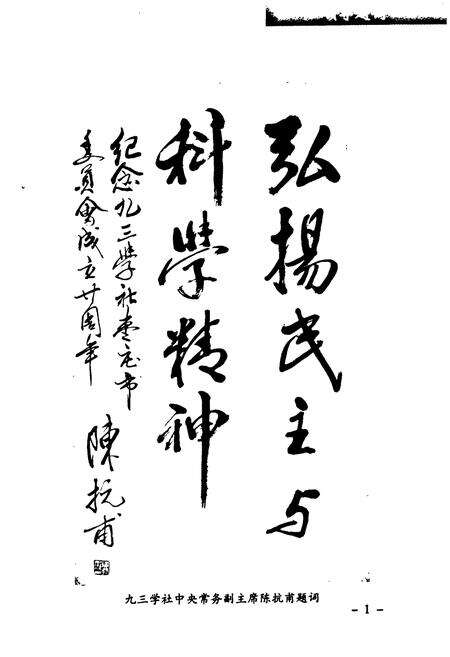 弘揚民主与
科學精神
纪念九三學社枣庄市
委員會成立廿周年
陳抗甫
九三学社中央常务副主席陈抗甫题词
- 1 -